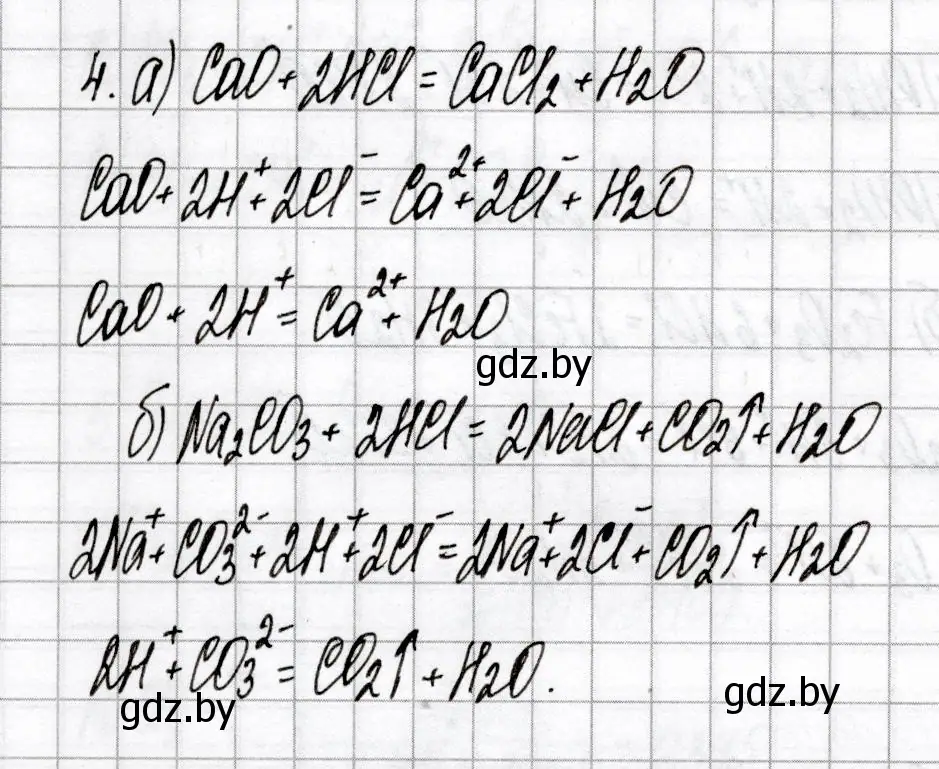 4. а) CaO + 2HCl = CaCl₂ + H₂O
CaO + 2H⁺ + 2Cl⁻ = Ca²⁺ + 2Cl⁻ + H₂O
CaO + 2H⁺ = Ca²⁺ + H₂O
gdz.by
б) Na₂CO₃ + 2HCl = 2NaCl + CO₂↑ + H₂O
2Na⁺ + CO₃²⁻ + 2H⁺ + 2Cl⁻ = 2Na⁺ + 2Cl⁻ + CO₂↑ + H₂O
2H⁺ + CO₃²⁻ = CO₂↑ + H₂O.
gdz.by
gdz.by